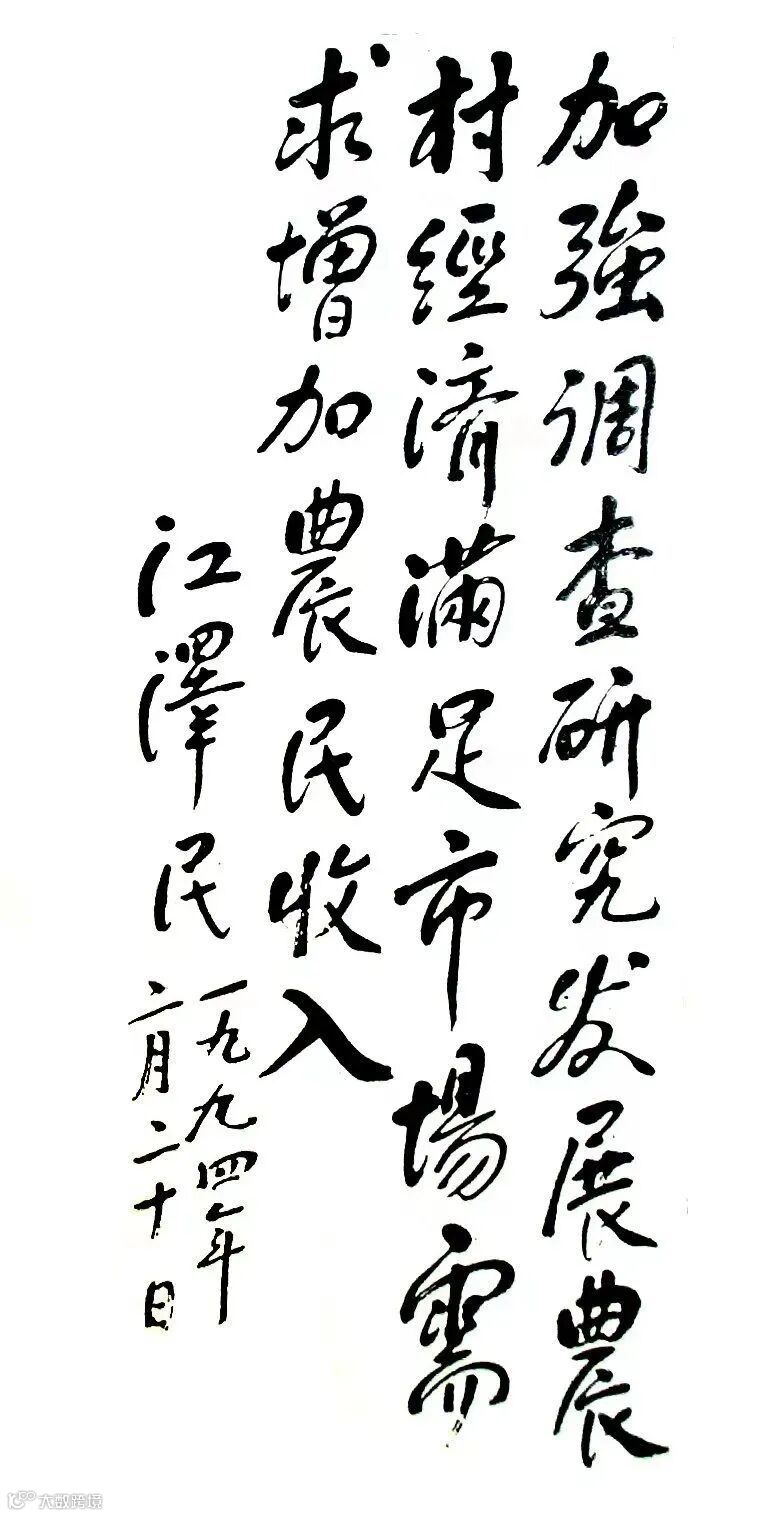 加強调查研究发展農
村經濟滿足市場需
求增加農民收入
江澤民
一九九四年
二月二十日
大数跨境